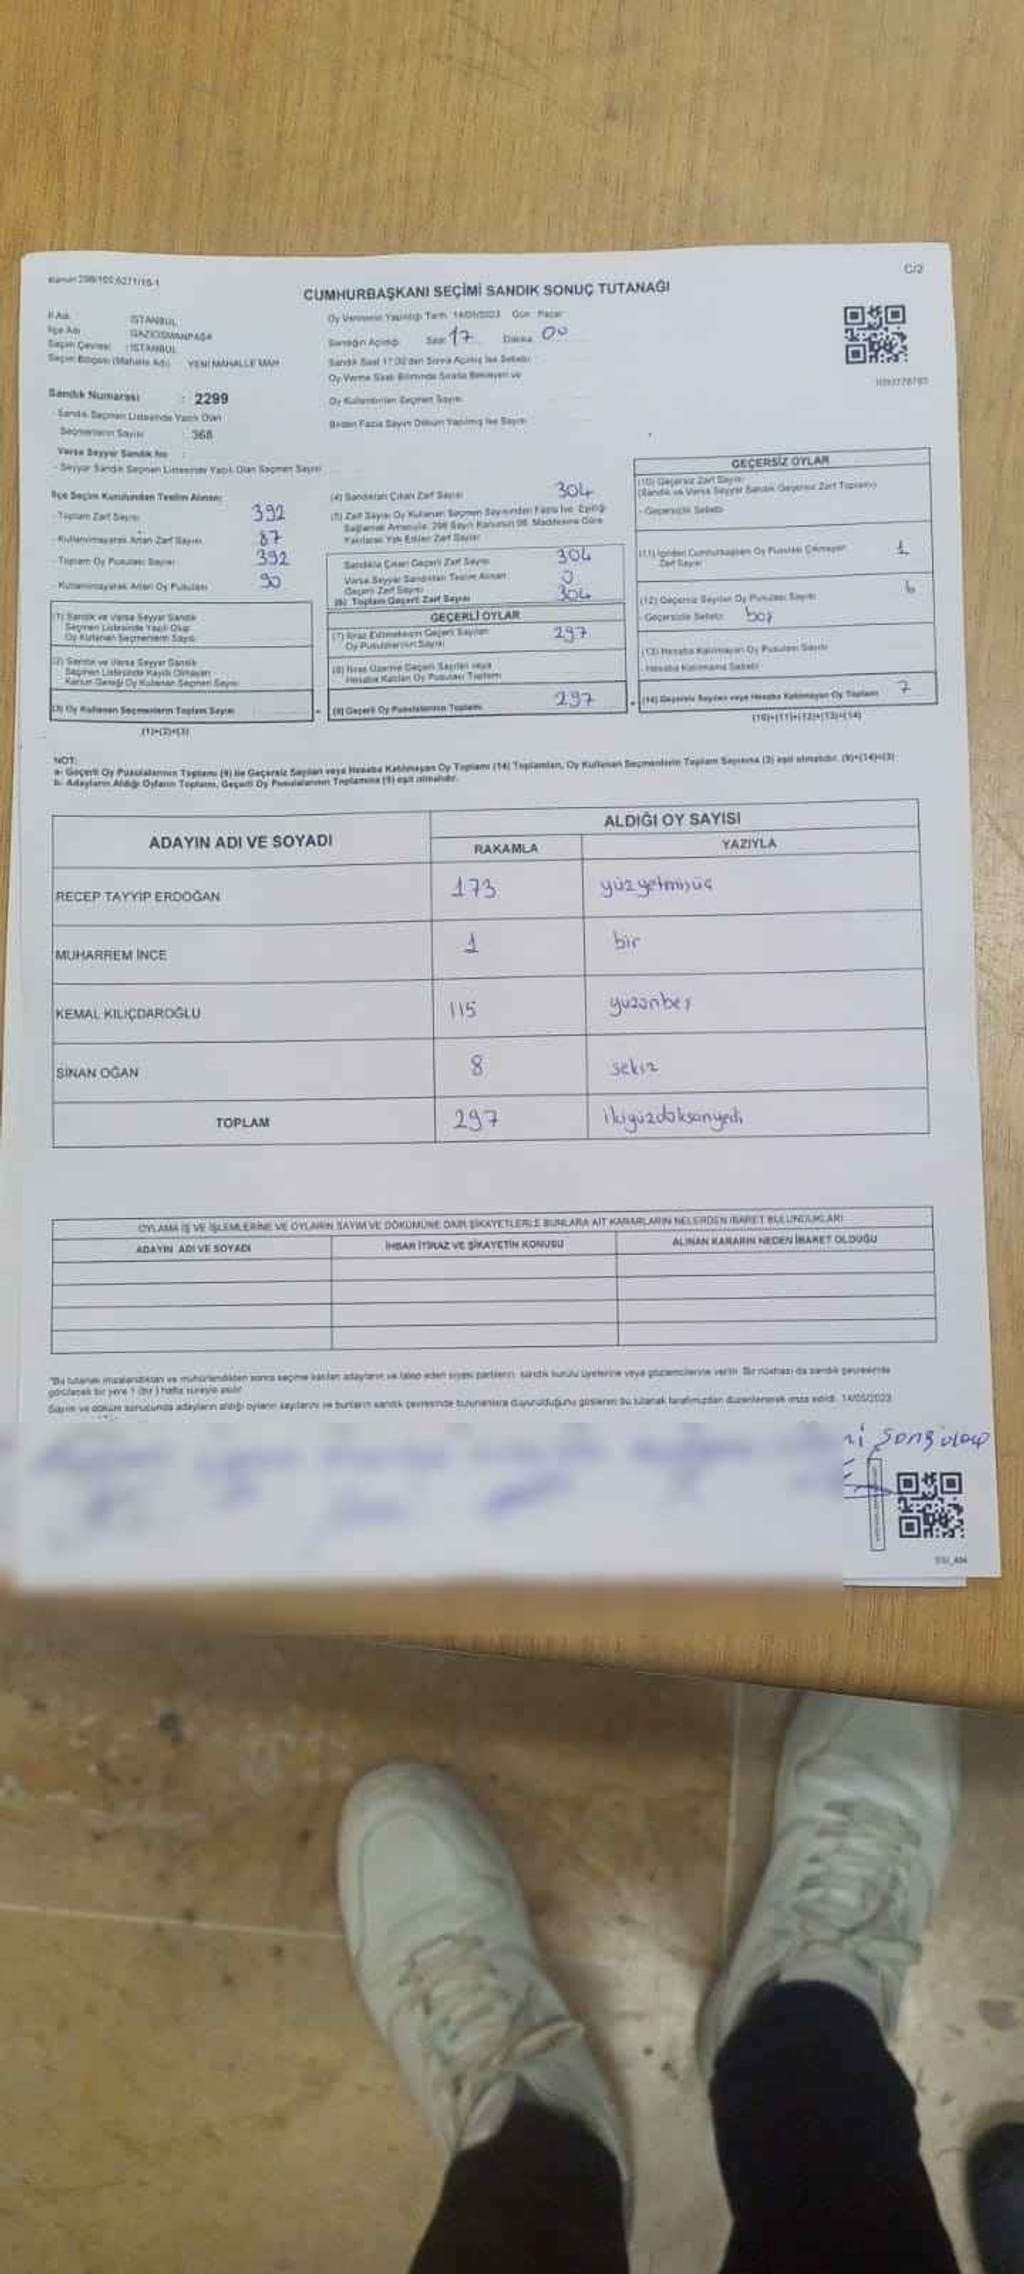 Kanun 298/105,6271/15-1
C/2
CUMHURBAŞKANI SEÇİMİ SANDIK SONUÇ TUTANAĞI
İl Adı : İSTANBUL
İlçe Adı : GAZİOSMANPAŞA
Seçim Çevresi : İSTANBUL
Seçim Bölgesi (Mahalle Adı) YENİ MAHALLE MAH
Sandık Numarası : 2299
Sandık Seçmen Listesinde Yazılı Olan
Seçmenlerin Sayısı : 368
Varsa Seyyar Sandık No :
- Seyyar Sandık Seçmen Listesinde Yazılı Olan Seçmen Sayısı
Oy Vermenin Yapıldığı Tarih 14/05/2023 Gün: Pazar
Sandığın Açıldığı Saat 17 Dakika 00
Sandık Saat 17:00'den Sonra Açılmış İse Sebebi
Oy Verme Saati Bitiminde Sırada Bekleyen ve
Oy Kullandırılan Seçmen Sayısı
Birden Fazla Sayım Döküm Yapılmış İse Sayısı
İlçe Seçim Kurulundan Teslim Alınan;
- Toplam Zarf Sayısı 392
- Kullanılmayarak Artan Zarf Sayısı 87
- Toplam Oy Pusulası Sayısı 392
- Kullanılmayarak Artan Oy Pusulası 90
(1) Sandık ve Varsa Seyyar Sandık
Seçmen Listesinde Yazılı Olup
Oy Kullanan Seçmenlerin Sayısı
(2) Sandık ve Varsa Seyyar Sandık
Seçmen Listesinde Kayıtlı Olmayan
Kanun Gereği Oy Kullanan Seçmen Sayısı
(3) Oy Kullanan Seçmenlerin Toplam Sayısı
(1)+(2)=(3)
(4) Sandıktan Çıkan Zarf Sayısı 304
(5) Zarf Sayısı Oy Kullanan Seçmen Sayısından Fazla İse, Eşitliği
Sağlamak Amacıyla, 298 Sayılı Kanunun 98. Maddesine Göre
Yakılarak Yok Edilen Zarf Sayısı
Sandıkta Çıkan Geçerli Zarf Sayısı 304
Varsa Seyyar Sandıktan Teslim Alınan
Geçerli Zarf Sayısı 0
(6) Toplam Geçerli Zarf Sayısı 304
GEÇERLİ OYLAR
(7) İtiraz Edilmeksizin Geçerli Sayılan
Oy Pusulalarının Sayısı 297
(8) İtiraz Üzerine Geçerli Sayılan veya
Hesaba Katılan Oy Pusulası Toplamı
(9) Geçerli Oy Pusulalarının Toplamı 297
GEÇERSİZ OYLAR
(10) Geçersiz Zarf Sayısı
(Sandık ve Varsa Seyyar Sandık Geçersiz Zarf Toplamı)
- Geçersizlik Sebebi
(11) İçinden Cumhurbaşkanı Oy Pusulası Çıkmayan
Zarf Sayısı 1
(12) Geçersiz Sayılan Oy Pusulası Sayısı 6
- Geçersizlik Sebebi boş
(13) Hesaba Katılmayan Oy Pusulası Sayısı
- Hesaba Katılmama Sebebi
(14) Geçersiz Sayılan veya Hesaba Katılmayan Oy Toplamı 7
(10)+(11)+(12)+(13)=(14)
NOT:
a- Geçerli Oy Pusulalarının Toplamı (9) ile Geçersiz Sayılan veya Hesaba Katılmayan Oy Toplamı (14) Toplamları, Oy Kullanan Seçmenlerin Toplam Sayısına (3) eşit olmalıdır. (9)+(14)=(3)
b- Adayların Aldığı Oyların Toplamı, Geçerli Oy Pusulalarının Toplamına (9) eşit olmalıdır.
ADAYIN ADI VE SOYADI
ALDIĞI OY SAYISI
RAKAMLA YAZIYLA
RECEP TAYYİP ERDOĞAN 173 yüzyetmişüç
MUHARREM İNCE 1 bir
KEMAL KILIÇDAROĞLU 115 yüzonbeş
SİNAN OĞAN 8 sekiz
TOPLAM 297 ikiyüzdoksanyedi
OYLAMA İŞ VE İŞLEMLERİNE VE OYLARIN SAYIM VE DÖKÜMÜNE DAİR ŞİKAYETLERLE BUNLARA AİT KARARLARIN NELERDEN İBARET BULUNDUKLARI
ADAYIN ADI VE SOYADI İHBAR İTİRAZ VE ŞİKAYETİN KONUSU ALINAN KARARIN NEDEN İBARET OLDUĞU
"Bu tutanak imzalandıktan ve mühürlendikten sonra seçime katılan adayların ve talep eden siyasi partilerin sandık kurulu üyelerine veya gözlemcilerine verilir. Bir nüshası da sandık çevresinde
görülecek bir yere 1 (bir) hafta süreyle asılır
Sayım ve döküm sonucunda adayların aldığı oyların sayılarını ve bunların sandık çevresinde bulunanlara duyurulduğunu gösteren bu tutanak tarafımızdan düzenlenerek imza edildi. 14/05/2023